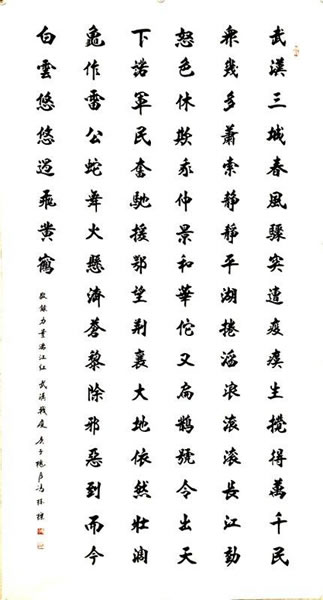 武漢三城春風驟突遭疫瘼生攪得萬千民
衆幾多蕭索靜靜平湖捲滔浪滾滾長江動
怒色休欺我仲景和華佗又扁鵲號令出天
下諾軍民奮馳援鄂望荆襄大地依然壯闊
龜作雷公蛇舞火懸濟蒼黎除邪惡到而今
白雲悠悠過乘黄鶴
敬錄力量滿江红 武漢戰疫 庚子